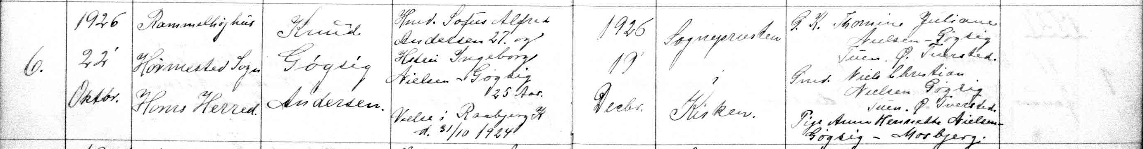 6.
1926
22'
Oktbr.
Rammelhøghus
Hørmested Sogn
Horns Herred.
Knud
Gøgsig
Andersen.
Hmd. Sofus Alfred
Andersen 27. og
Hstru Ingeborg
Nielsen - Gøgsig
25 Aar.
Vielse i Raabjerg K
d. 31/10 1924
1926
19'
Decbr.
Sognepræsten
i
Kirken.
G. K. Thomine Juliane
Nielsen - Gøgsig
Tuen. Ø. Tversted.
Gmd. Niels Christian
Nielsen Gøgsig
Tuen. Ø. Tversted.
Pige Anna Henriette Nielsen-
Gøgsig - Mosbjerg.